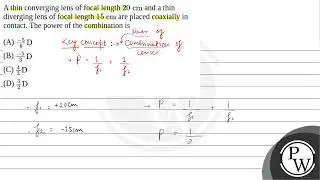 A thin converging lens of focal length 20 cm and a thin
diverging lens of focal length 15 cm are placed coaxially in
contact. The power of the combination is
(A) -5/6 D
(B) -5/3 D
(C) 4/3 D
(D) 3/2 D
Key concept :→ Power of Combination of lenses
→ P = 1/f₁ + 1/f₂
f₁ = +20cm
f₂ = -15cm
→ P = 1/f₁ + 1/f₂
P = 1/2
PW